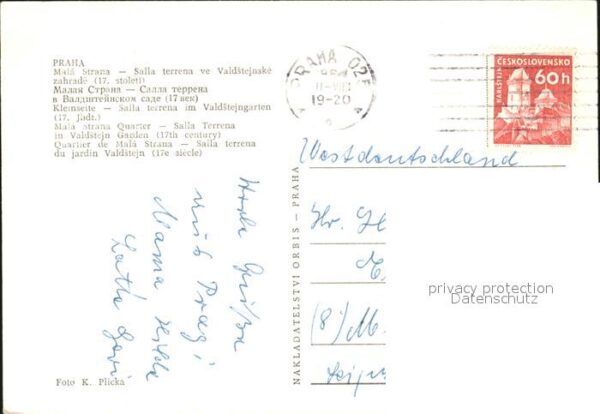 PRAHA
Malá Strana — Salla terrena ve Valdštejnské
zahradě (17. století)
Малая Страна — Салла террена
в Валдштейнском саде (17 век)
Kleinseite — Salla terrena im Valdštejngarten
(17. Jhdt.)
Malá Strana Quarter — Salla Terrena
in Valdštejn Garden (17th century)
Quartier de Malá Strana — Salla terrena
du jardin Valdštejn (17e siècle)
PRAHA 025
19-20
ČESKOSLOVENSKO
KARLŠTEJN
60h
Westdeutschland
Hr. H
(8) M.
NAKLADATELSTVÍ ORBIS — PRAHA
Grüße
aus Prag
Mama
privacy protection
Datenschutz
Foto K. Plicka